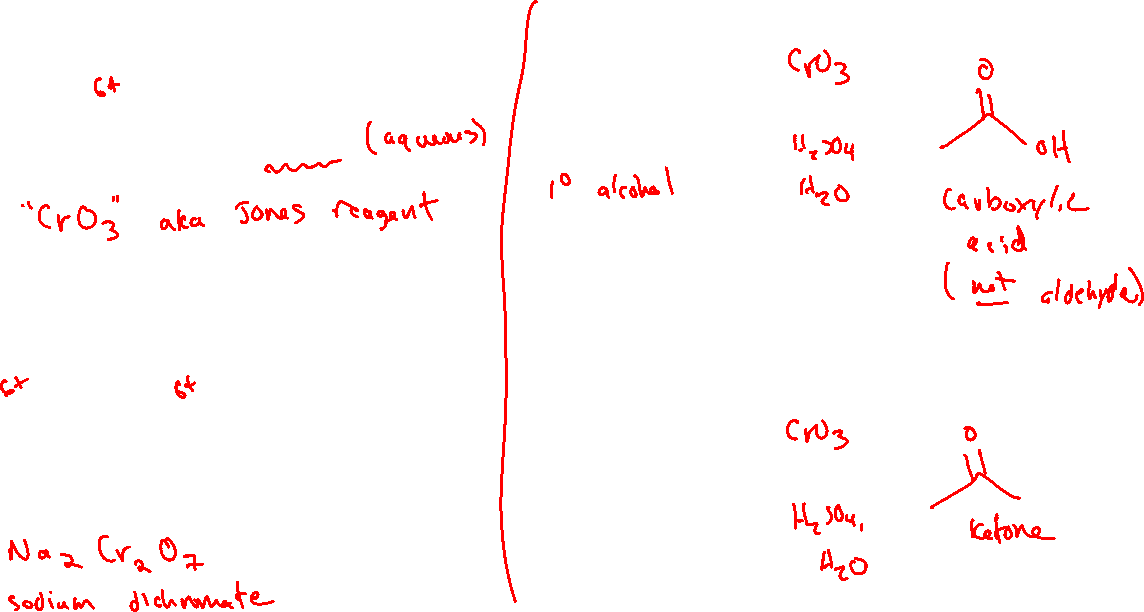 6+
(aqueous)
"CrO3" aka Jones reagent
6+ 6+
Na2 Cr2O7
sodium dichromate
1° alcohol
CrO3
H2SO4
H2O
O
OH
Carboxylic
acid
(not aldehyde)
CrO3
H2SO4,
H2O
O
Ketone